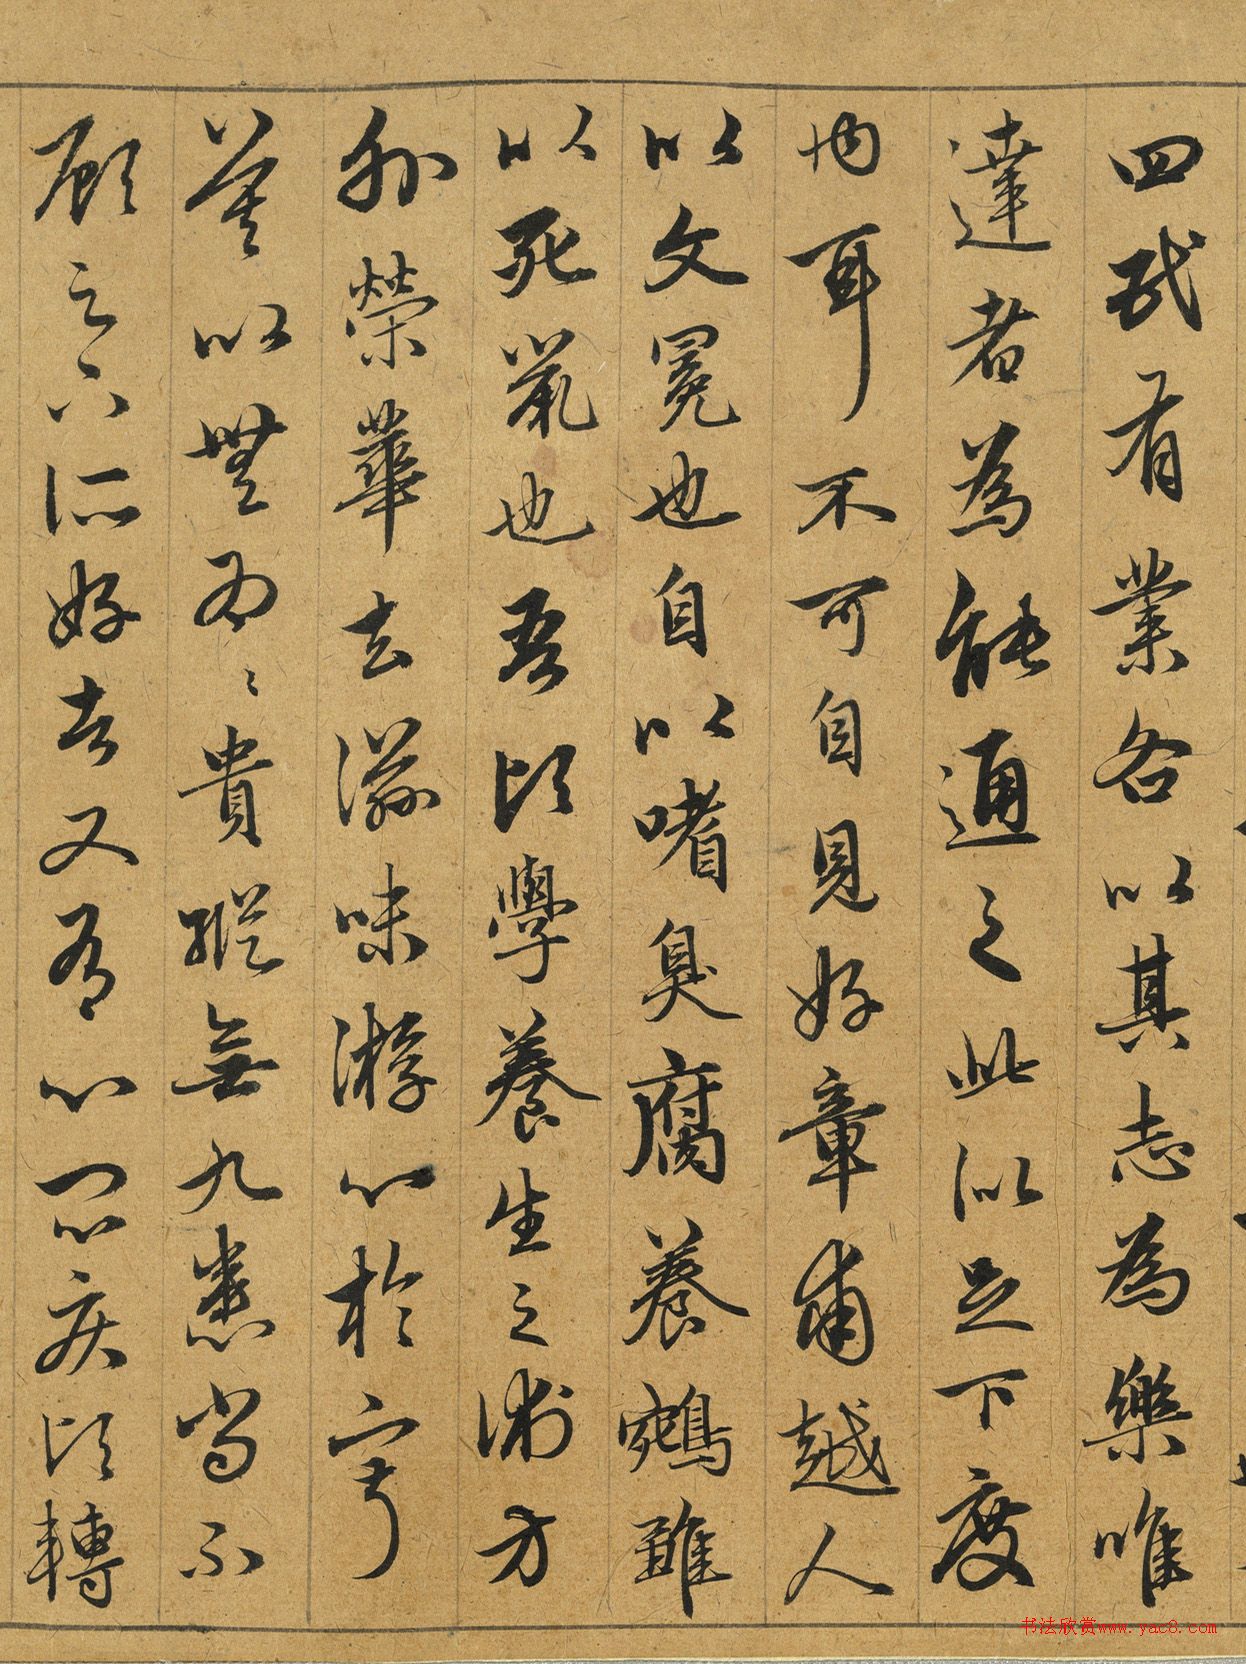 四民有業各以其志為樂唯
達者為能通之此似足下度
內耳不可自見好章甫越人
以文冕也自以嗜臭腐養鵷雛
以死鼠也吾頃學養生之術方
外榮華去滋味游心於寂
寞以無為〻貴縱無九患尚不
顧足下所好者又有心悶疾頃轉
书法欣赏www.yac8.com